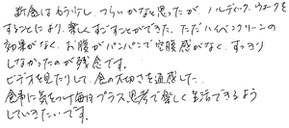 断食はもう少し、つらいかなと思ったが、ノルディック.ウォークを
することにより、楽しくすごすことができた。ただハイベンクリーンの
効果がなく、お腹がパンパンで空腹感がなく、すっきり
しなかったのが残念です。
ビデオを見たりして、食の大切さを道感した。
食事に気をつけ毎日プラス思考で楽しく生活できるよう
していきたいです。